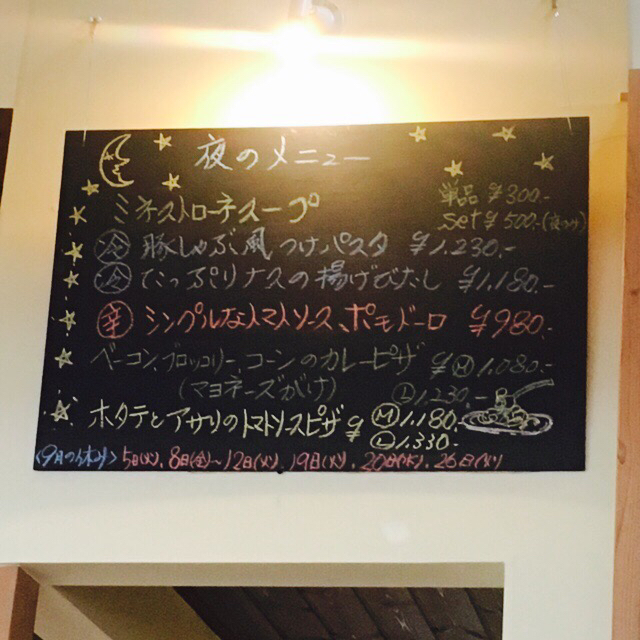 夜のメニュー
ミネストローネスープ 単品 ¥300.-
set ¥500.-
㊇ 豚しゃぶ風つけパスタ ¥1.230.-
たっぷりナスの揚げびたし ¥1.180.-
辛 シンプルなトマトソース、ポモドーロ ¥980.-
ベーコン、ブロッコリー、コーンのカレーピザ ¥Ⓜ1.080.-
(マヨネーズがけ) Ⓛ1.230.-
ホタテとアサリのトマトソースピザ ¥Ⓜ1.180.-
Ⓛ1.330.-
<9月の休み> 5日(火)、8日(金)~12日(火)、19日(火)、20日(水)、26日(火)